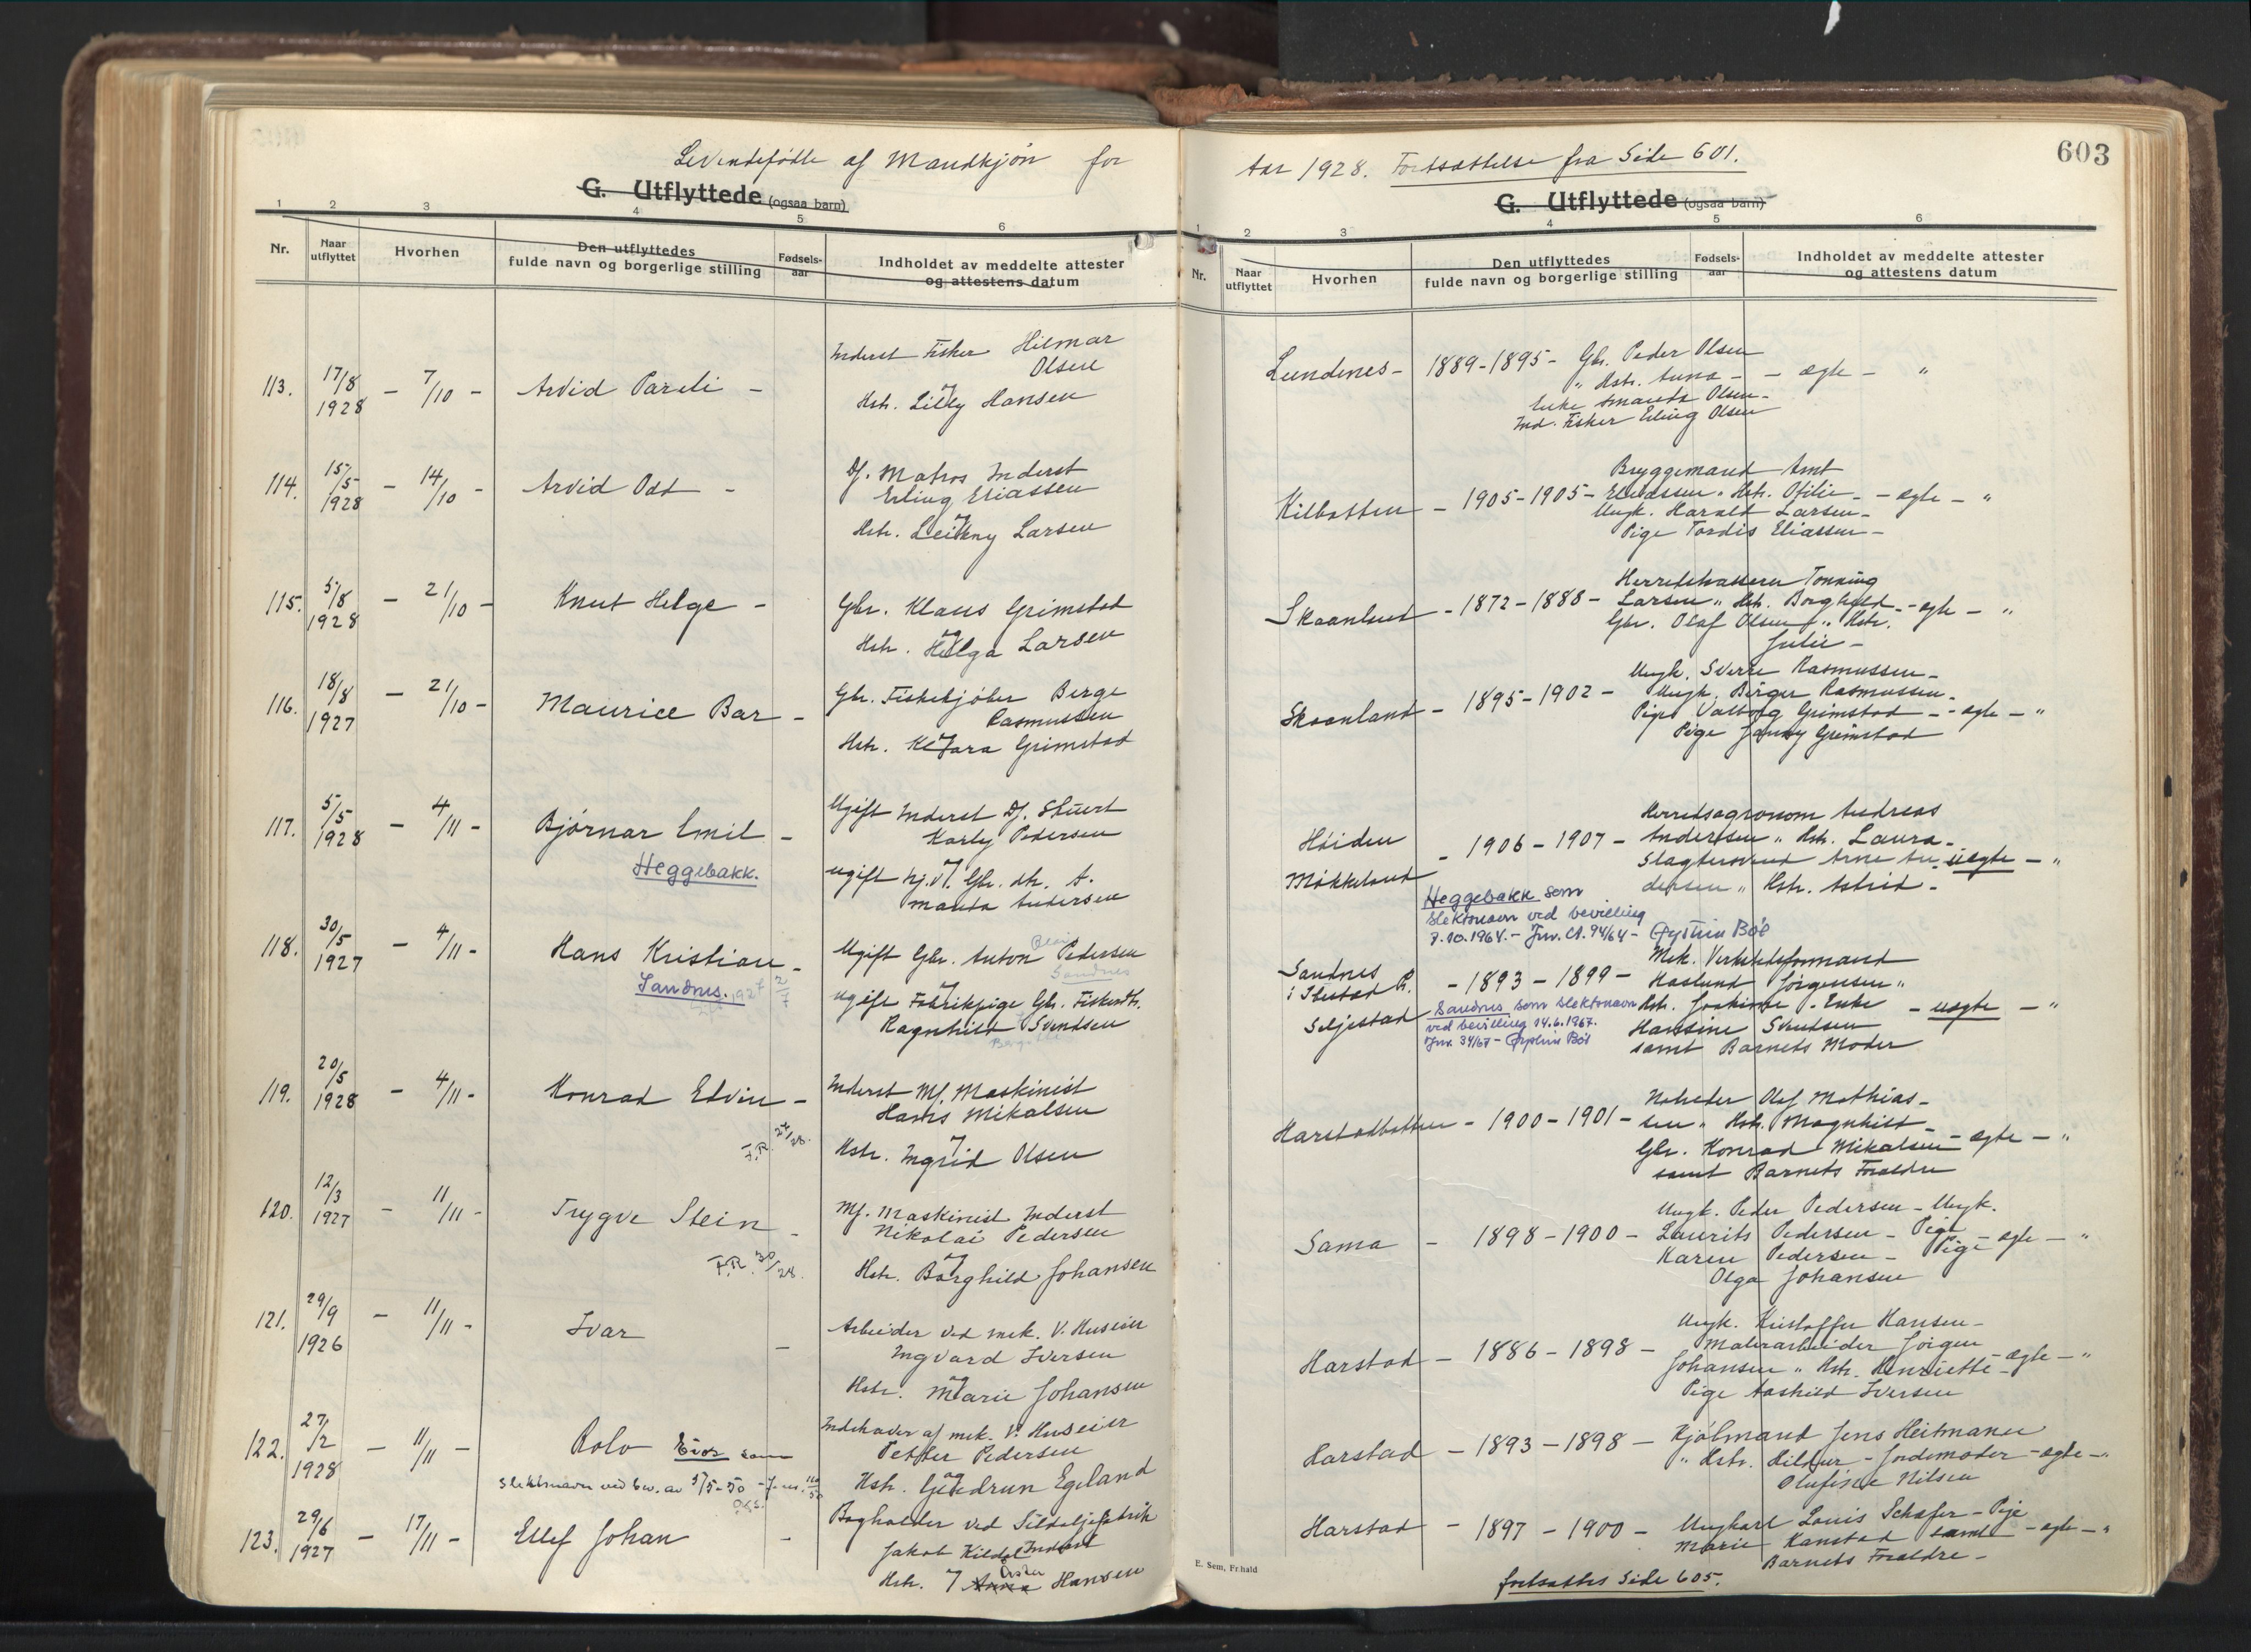 Levendefødte af Mandkjøn for
G. Utflyttede (ogsaa barn)
1 2 3 4 5 6
Nr. Naar utflyttet Hvorhen Den utflyttedes fulde navn og borgerlige stilling Fødsels-aar Indholdet av meddelte attester og attestens datum
113. 17/8 1928 - 7/10 - Arvid Pareli -
Inderst Fisker Hilmar
Olsen
og
Hstr. Lilly Hansen
114. 15/5 1928 - 14/10 - Arvid Odd -
Df. Matros Inderst
Erling Eliassen
og
Hstr. Leikny Larsen
115. 5/8 1928 - 21/10 - Knut Helge -
Gbr. Klaus Grimstad
og
Hstr. Helga Larsen
116. 18/8 1927 - 21/10 - Maurice Bar -
Gbr. Fiskekjøber Berge
Rasmussen
og
Hstr. Klara Grimstad
117. 5/5 1928 - 4/11 - Bjørnar Emil -
Heggebakk.
Ugift Inderst Df. Stuert
Karly Pedersen
og
ugift hj.v. Gbr. dtr. A-
manda Andersen
118. 30/5 1927 - 4/11 - Hans Kristian -
Sandnes.
Ugift Gbr. Anton Pedersen
Sandnes
og
ugift Fabrikpige Gbr. Fiskerdtr.
Ragnhild Svendsen
119. 20/5 1928 - 4/11 - Konrad Edvin -
F.R. 24/28.
Inderst Mf. Maskinist
Hans Mikalsen
og
Hstr. Ingrid Olsen
120. 12/3 1927 - 11/11 - Trygve Stein -
F.R. 30/28.
Mf. Maskinist Inderst
Nikolai Pedersen
og
Hstr. Borghild Johansen
121. 29/9 1926 - 11/11 - Ivar -
Arbeider ved mek. V. Huseier
Ingvard Iversen
og
Hstr. Marie Johansen
122. 27/2 1928 - 11/11 - Rolv Eios som
slektsnavn ved bev. av 5/5-50
Indehaver af mek. V. Huseier
Petter Pedersen
og
Hstr. Gudrun Egeland
123. 29/6 1927 - 17/11 - Ellef Johan -
Bogholder ved Sildoljefabrik
Jakob Kildal Inderst
og
Hstr. Anna Hansen
603
Aar 1928. Fortsættelse fra Side 601.
G. Utflyttede (ogsaa barn)
1 2 3 4 5 6
Nr. Naar utflyttet Hvorhen Den utflyttedes fulde navn og borgerlige stilling Fødsels-aar Indholdet av meddelte attester og attestens datum
Lundenes - 1889-1895 - Gbr. Peder Olsen
" Hstr. Anna - - ægte - "
Enke Amanda Olsen -
Ind. Fisker Erling Olsen
Kilbotten - 1905-1905 - Bryggemand Amt
Eliassen " Hstr. Otilie - - ægte - "
Ungk. Harald Larsen -
Pige Tordis Eliassen -
Skaanland - 1872-1888 - Herredskasserer Tonning
Larsen " Hstr. Borghild - - ægte - "
Gbr. Olaf Olsen " Hstr.
Julie -
Skaanland - 1895-1902 - Ungk. Sverre Rasmussen -
Ungk. Birger Rasmussen -
Pige Valborg Grimstad - - ægte - "
Pige Jenny Grimstad
Høiden
Møkkeland - 1906-1907 - Herredsagronom Andreas
Andersen " Hstr. Laura -
Slagtersvend Arne An- uægte - "
dersen " Hstr. Astrid -
Heggebakk som
slektsnavn ved bevilling
7.10.1964. - Jnr. Cl. 94/64 - Øystein Bøe
Sandnes
i Ibestad P.
Seljestad - 1893-1899 - Mek. Verkstedsformand
Haslund Jørgensen "
Hstr. Joakime - Enke - uægte - "
Hansine Svendsen
samt Barnets Moder
Sandnes som slektsnavn
ved bevilling 14.6.1967.
Jnr. 34/67 - Øystein Bøe
Harstadbotten - 1900-1901 - Notreder Olaf Mathias-
sen " Hstr. Magnhild -
Gbr. Konrad Mikalsen - ægte - "
samt Barnets Foreldre
Sama - 1898-1900 - Ungk. Peder Pedersen - Ungk.
Laurits Pedersen - Pige - ægte - "
Karen Pedersen - Pige
Olga Johansen
Harstad - 1886-1898 - Ungk. Kristoffer Hansen -
Malerarbeider Jørgen
Johansen " Hstr. Henriette - ægte - "
Pige Aashild Iversen
Harstad - 1893-1898 - Kjølmand Jens Heitmann
" Hstr. Hildur - Jordemoder - ægte - "
Olufine Nilsen
Harstad - 1897-1900 - Ungkarl Louis Schæfer - Pige
Marie Kanstad samt - ægte - "
Barnets Foreldre -
E. Sem, Fr.hald
fortsættes Side 605.